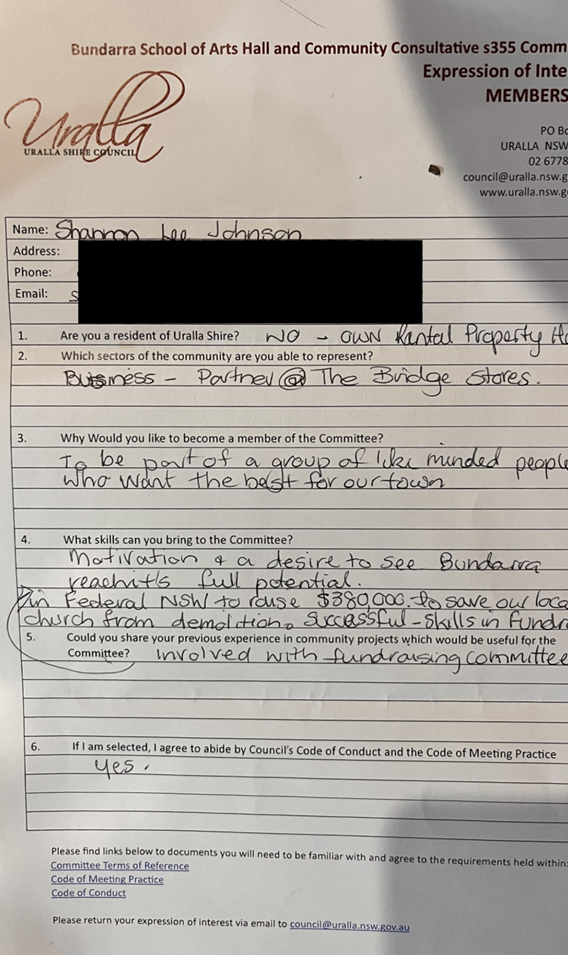 Bundarra School of Arts Hall and Community Consultative s355 Comm
Expression of Inte
MEMBERS
Uralla
URALLA SHIRE COUNCIL
PO Bo
URALLA NSW
02 6778
council@uralla.nsw.g
www.uralla.nsw.g
Name: Shannon Lee Johnson
Address:
Phone:
Email: s
1. Are you a resident of Uralla Shire? NO - OWN Rantal Property
2. Which sectors of the community are you able to represent?
Business - Partner @ The Bridge Stores.
3. Why Would you like to become a member of the Committee?
To be part of a group of like minded people
who want the best for our town
4. What skills can you bring to the Committee?
Motivation & a desire to see Bundarra
reach it's full potential.
in Federal NSW to raise $380,000.to save our loca
church from demolition. Successful - Skills in fundr
5. Could you share your previous experience in community projects which would be useful for the
Committee? involved with fundraising committee
6. If I am selected, I agree to abide by Council's Code of Conduct and the Code of Meeting Practice
yes.
Please find links below to documents you will need to be familiar with and agree to the requirements held within:
Committee Terms of Reference
Code of Meeting Practice
Code of Conduct
Please return your expression of interest via email to council@uralla.nsw.gov.au